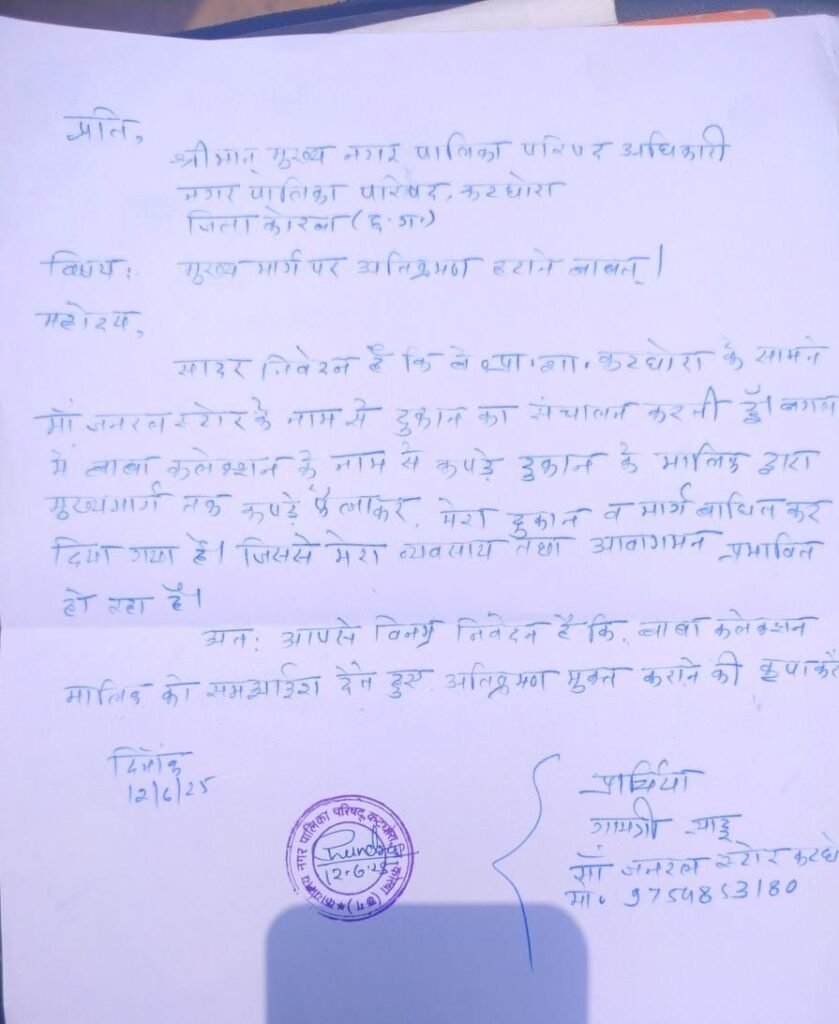 प्रति,
श्रीमान् मुख्य नगर पालिका परिषद अधिकारी
नगर पालिका परिषद, कटघोरा
जिला कोरबा (छ.ग.)
विषय: मुख्य मार्ग पर अतिक्रमण हटाने बाबत्।
महोदय,
सादर निवेदन है कि कटघोरा के सामने
माँ जनरल स्टोर के नाम से दुकान का संचालन करती हूँ। बगल
में बाबा कलेक्शन के नाम से कपड़े दुकान के मालिक द्वारा
मुख्यमार्ग तक कपड़े फैलाकर, मेरा दुकान व मार्ग बाधित कर
दिया गया है। जिससे मेरा व्यवसाय तथा आवागमन प्रभावित
हो रहा है।
अत: आपसे विनम्र निवेदन है कि, बाबा कलेक्शन
मालिक को समझाईश देते हुए अतिक्रमण मुक्त कराने की कृपा करें
दिनाँक
12/6/25
प्रार्थिया
साहू
माँ जनरल स्टोर कटघो
मो. 9754853180
कार्यालय नगर पालिका परिषद् कटघोरा कोरबा (छ.ग.)
12.6.25